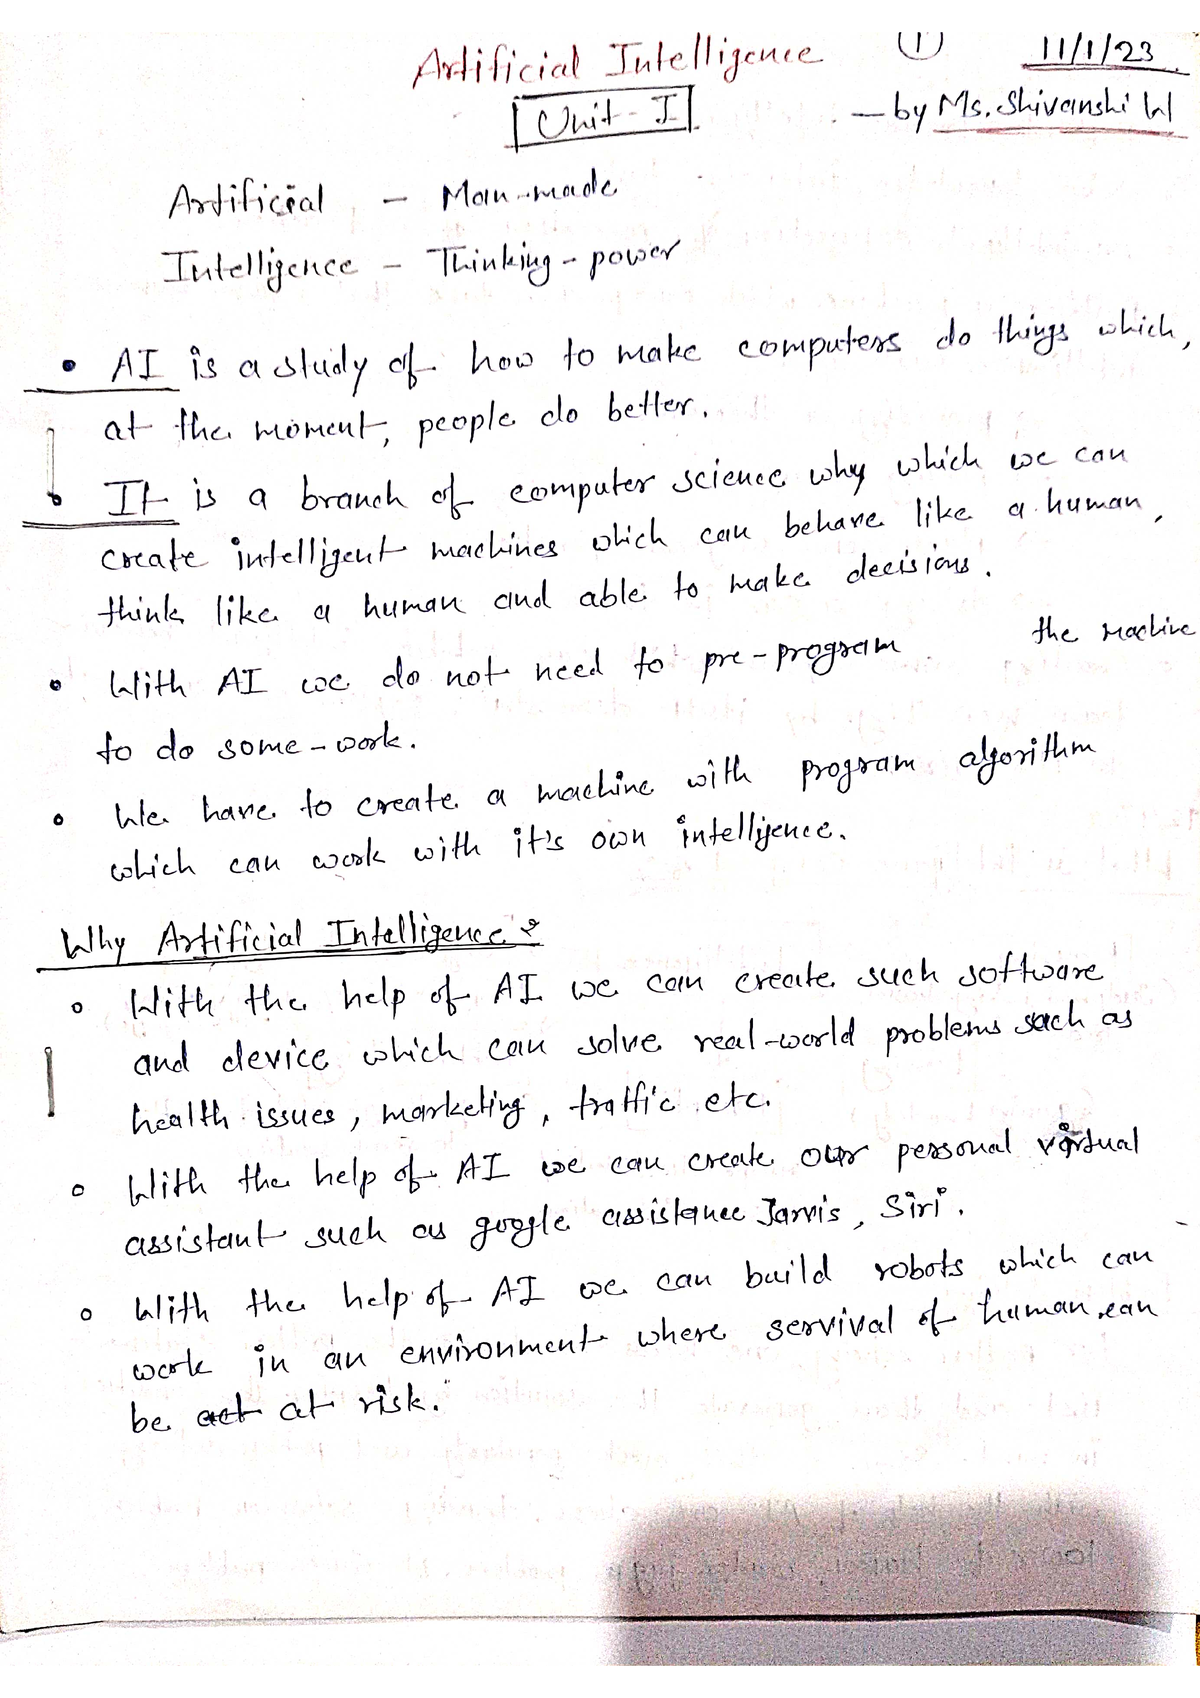 Artificial Intelligence ① 11/1/23
Unit - I
- by Ms. Shivanshi
Artificial - Man-made
Intelligence - Thinking - power
• AI is a study of how to make computers do things which,
at the moment, people do better.
• It is a branch of computer science why which we can
create intelligent machines which can behave like a human,
think like a human and able to make decisions.
• With AI we do not need to pre-program the machine
to do some-work.
• We have to create a machine with program algorithm
which can work with it's own intelligence.
Why Artificial Intelligence?
• With the help of AI we can create such software
and device which can solve real-world problems such as
health issues, marketing, traffic etc.
• With the help of AI we can create our personal virtual
assistant such as google assistance Jarvis, Siri.
• With the help of AI we can build robots which can
work in an environment where servival of human can
be at risk.